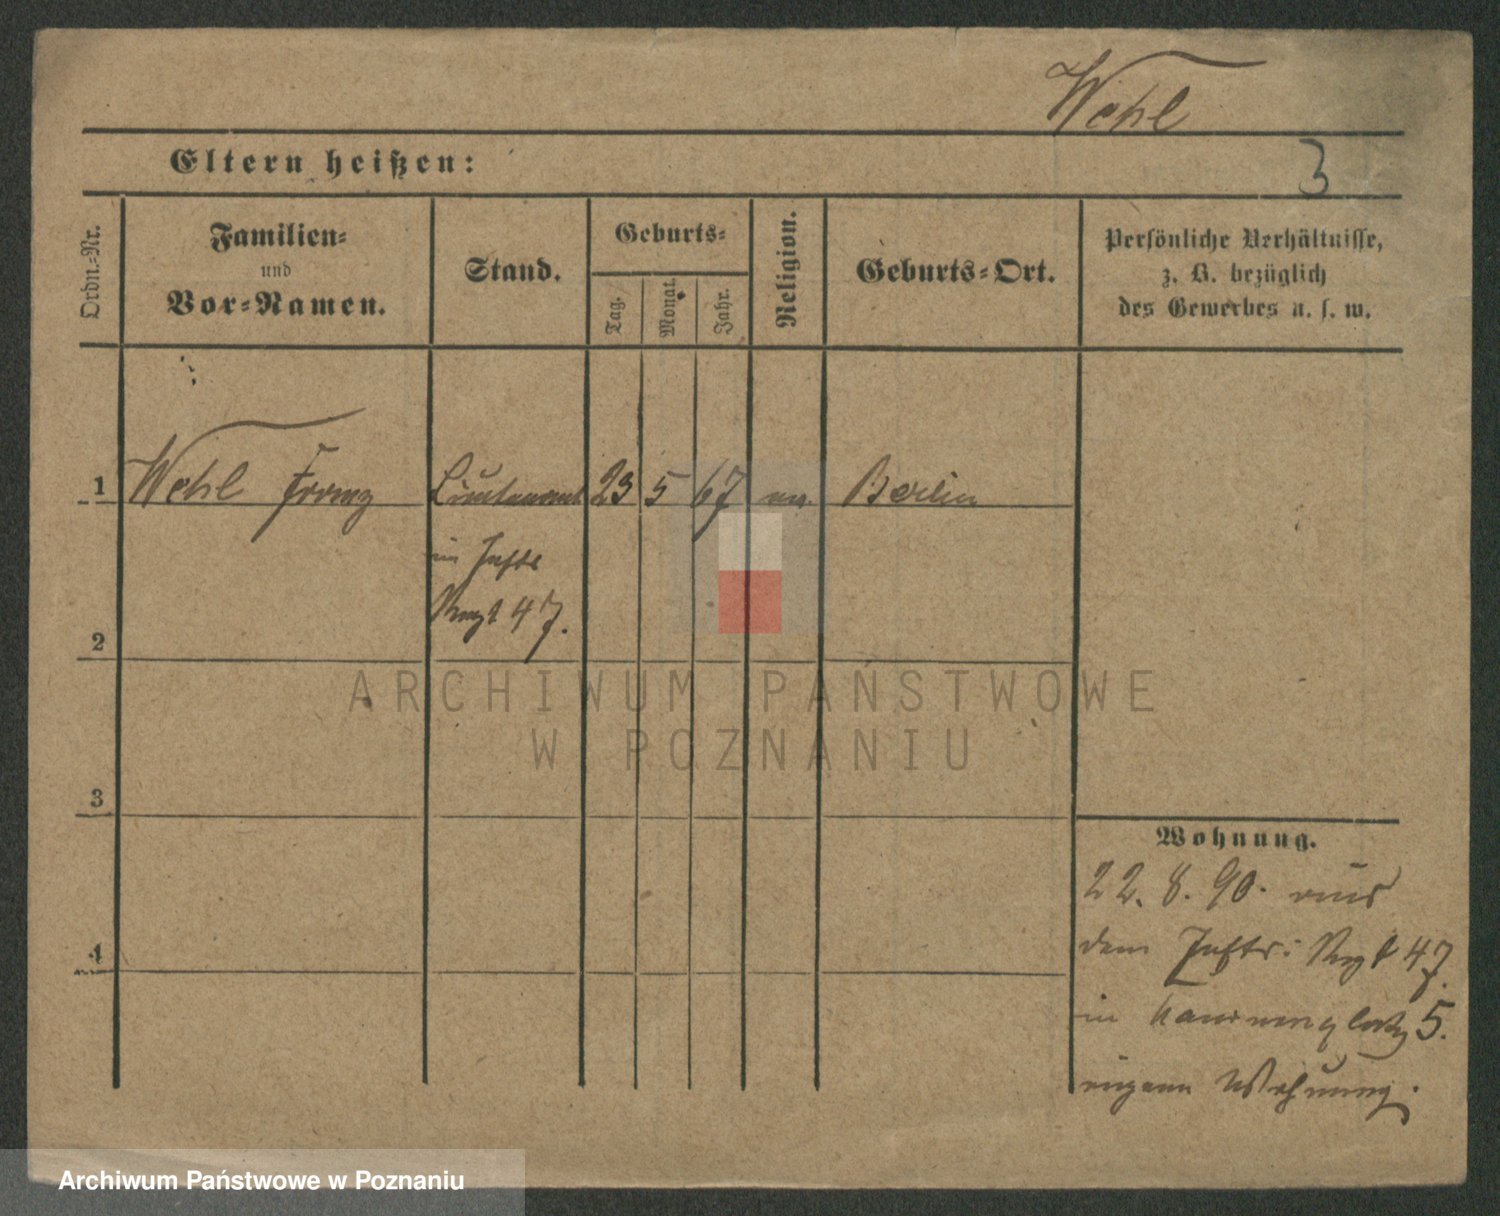 Wehl
Eltern heißen:
3
Ordn.-Nr.
Familien-
und
Vor-Namen.
Stand.
Geburts-
Tag.
Monat.
Jahr.
Religion.
Geburts-Ort.
Persönliche Verhältnisse,
z. B. bezüglich
des Gewerbes u. s. w.
1 Wehl Franz Lieutenant 23 5 67 ev. Berlin
im Inftr
Regt 47.
2
3
4
Wohnung.
22. 8. 90. aus
dem Inftr: Regt 47.
in 5.
eigene Wohnung.
ARCHIWUM PAŃSTWOWE
W POZNANIU
Archiwum Państwowe w Poznaniu